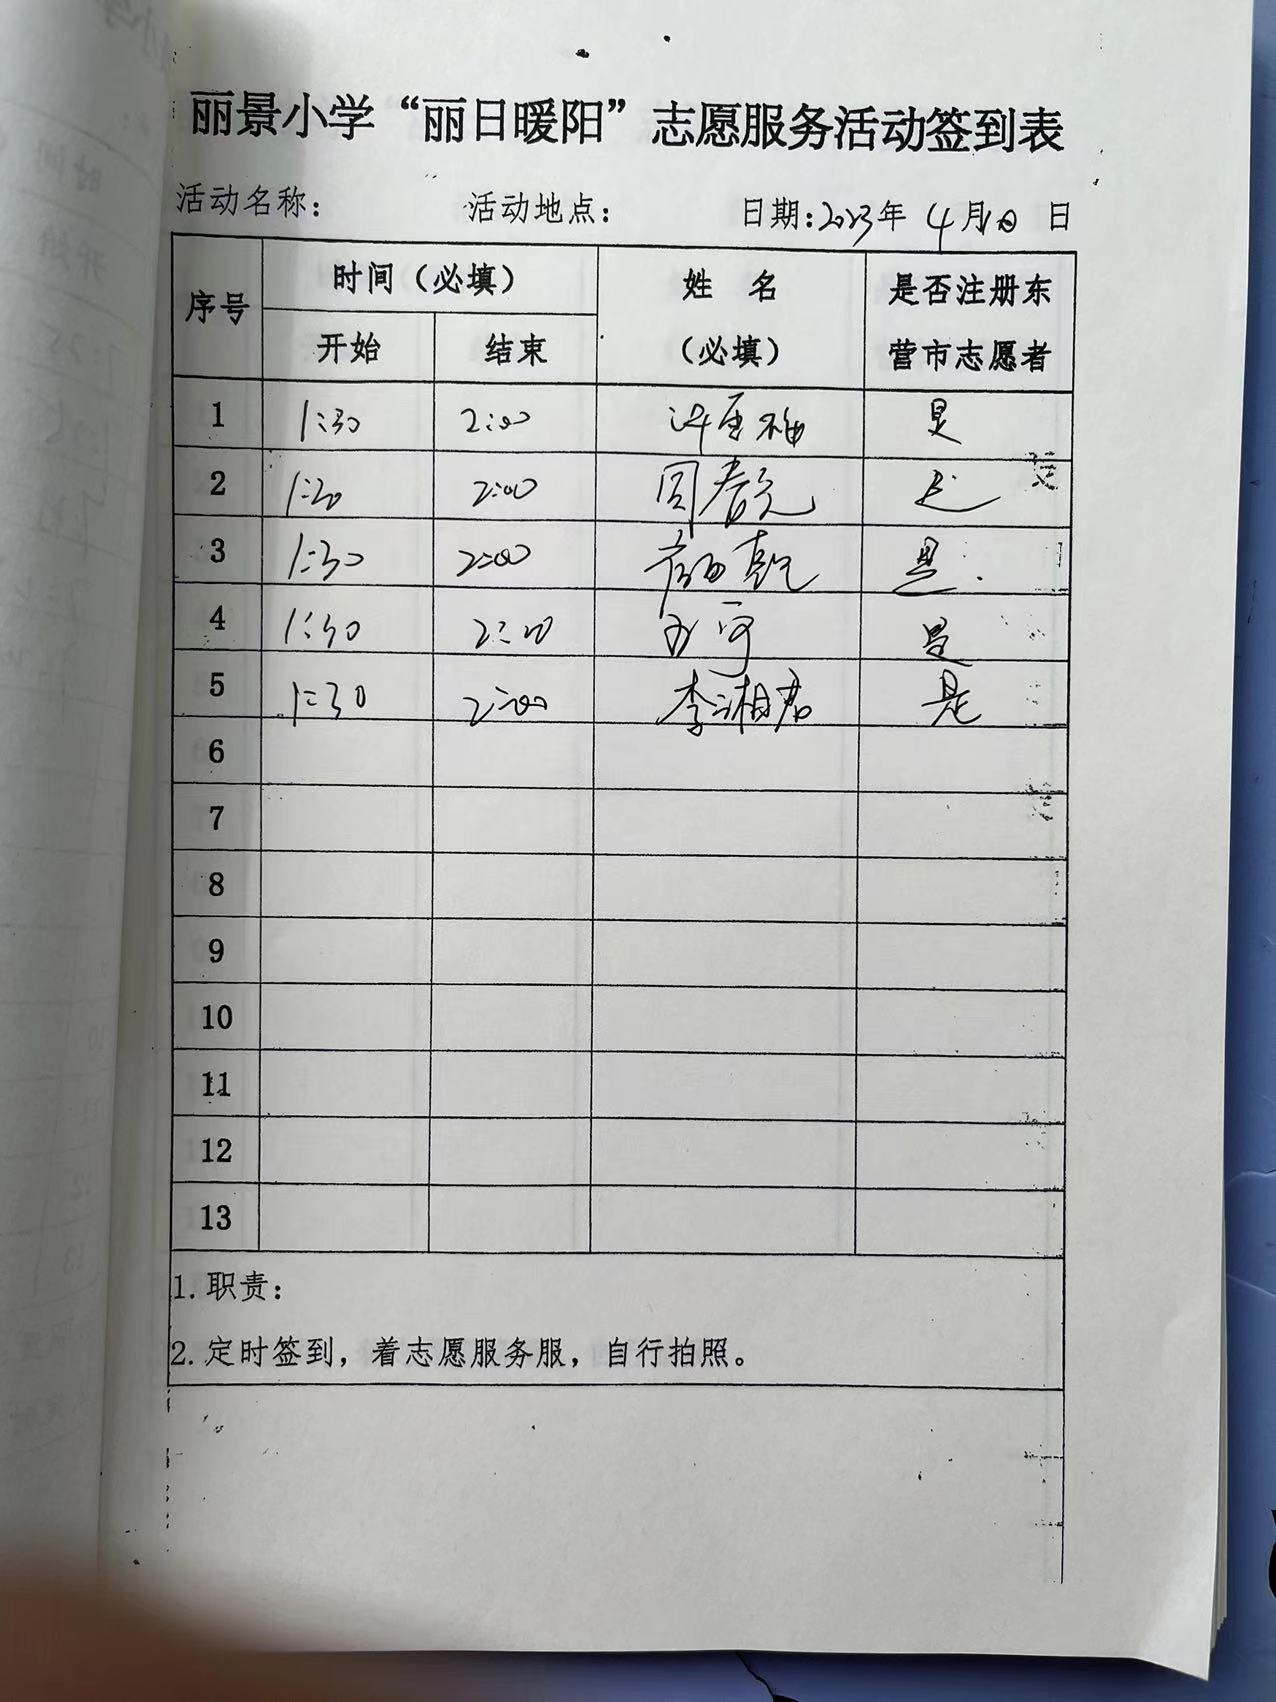 丽景小学“丽日暖阳”志愿服务活动签到表
活动名称： 活动地点： 日期:2023年 4月10日
序号 时间（必填） 姓 名 是否注册东
开始 结束 （必填） 营市志愿者
1 1:30 2:00 是
2 1:30 2:00 是
3 1:30 2:00 是
4 1:30 2:00 是
5 1:30 2:00 李湘君 是
6
7
8
9
10
11
12
13
1.职责：
2.定时签到，着志愿服务服，自行拍照。